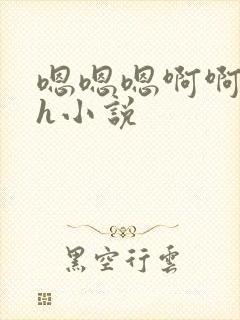 嗯嗯嗯啊啊
h小説
黑空行雲